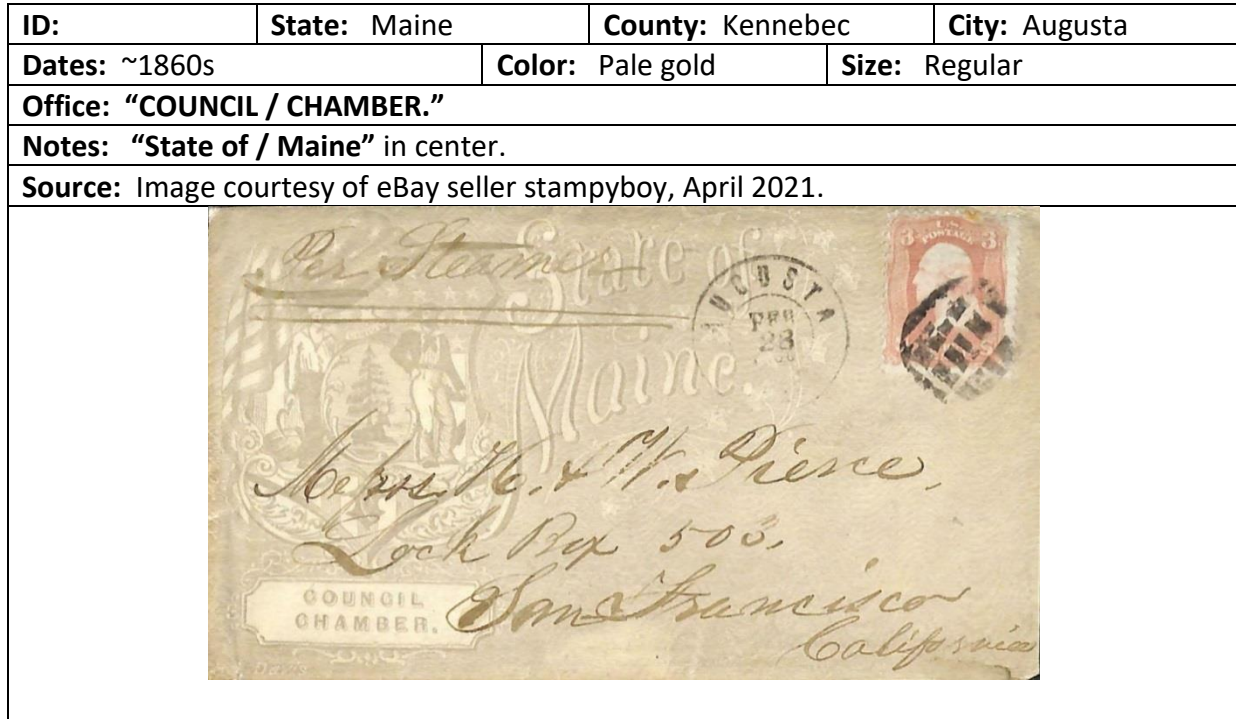 ID: State: Maine County: Kennebec City: Augusta
Dates: ~1860s Color: Pale gold Size: Regular
Office: “COUNCIL / CHAMBER.”
Notes: “State of / Maine” in center.
Source: Image courtesy of eBay seller stampyboy, April 2021.
Per Steamer
State of
Maine.
AUGUSTA
FEB
28
U.S.
POSTAGE
3 3
Messrs. H. & W. Pierce,
Lock Box 503,
San Francisco
California
COUNCIL
CHAMBER.